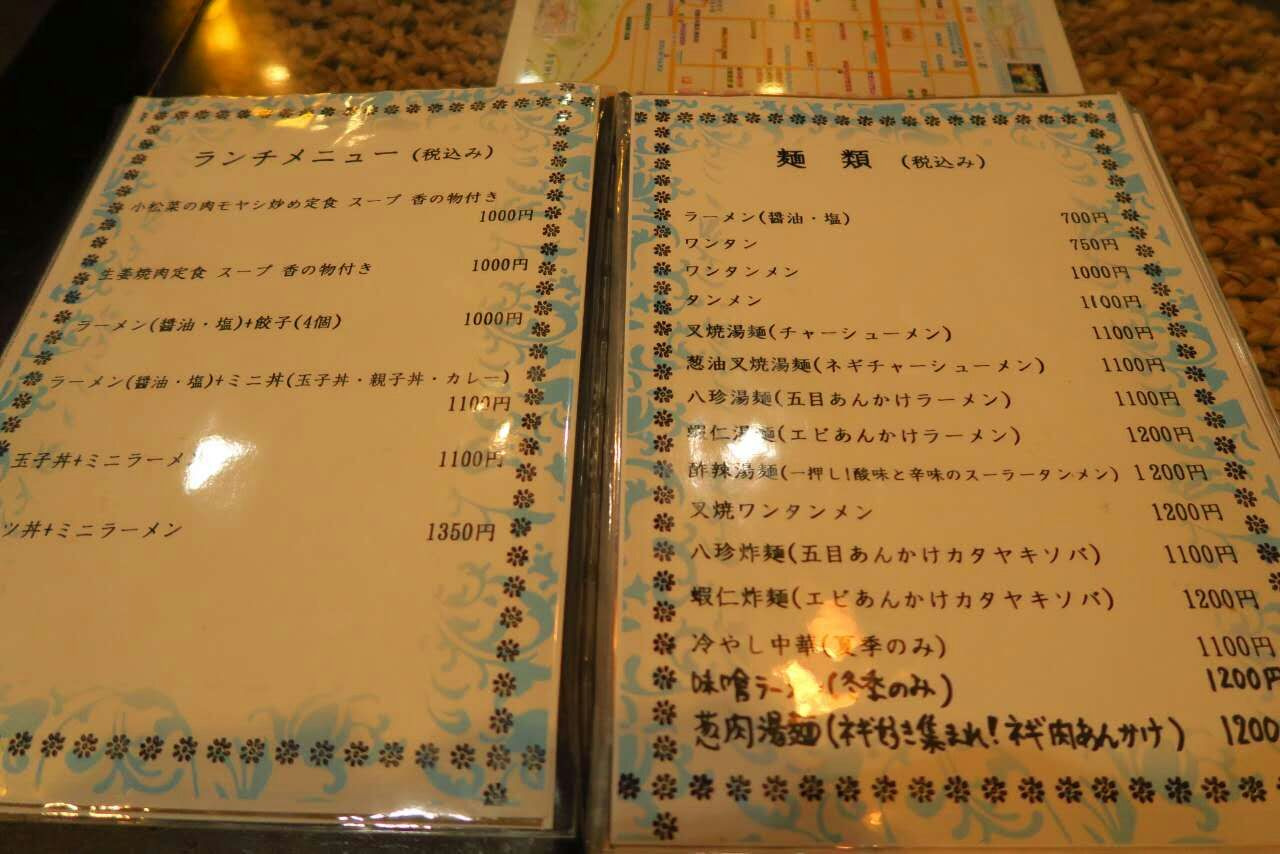 ランチメニュー (税込み)
小松菜の肉モヤシ炒め定食 スープ 香の物付き
1000円
生姜焼肉定食 スープ 香の物付き 1000円
ラーメン(醤油・塩)+餃子(4個) 1000円
ラーメン(醤油・塩)+ミニ丼(玉子丼・親子丼・カレー)
1100円
玉子丼+ミニラーメン 1100円
ツ丼+ミニラーメン 1350円
麺 類 (税込み)
ラーメン(醤油・塩) 700円
ワンタン 750円
ワンタンメン 1000円
タンメン 1100円
叉焼湯麺(チャーシューメン) 1100円
葱油叉焼湯麺(ネギチャーシューメン) 1100円
八珍湯麺(五目あんかけラーメン) 1100円
蝦仁湯麺(エビあんかけラーメン) 1200円
酢辣湯麺(一押し!酸味と辛味のスーラータンメン) 1200円
叉焼ワンタンメン 1200円
八珍炸麺(五目あんかけカタヤキソバ) 1100円
蝦仁炸麺(エビあんかけカタヤキソバ) 1200円
冷やし中華(夏季のみ) 1100円
味噌ラーメン(冬季のみ) 1200円
葱肉湯麺(ネギ好き集まれ!ネギ肉あんかけ) 1200